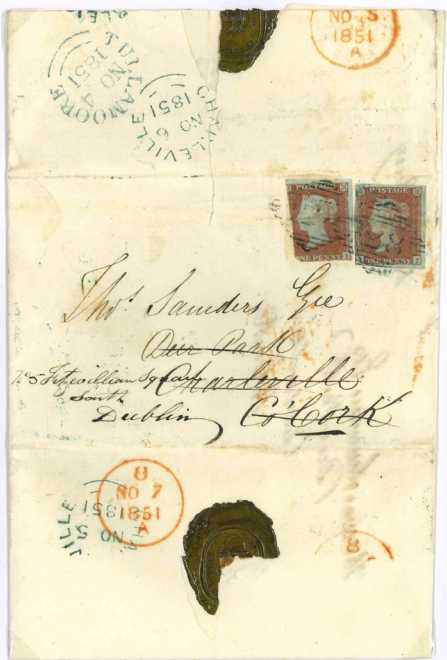 NO 5
1851
A
TULLAMOORE
NO 4
1851
CHARLEVILLE
NO 6
1851
POSTAGE
ONE PENNY
POSTAGE
ONE PENNY
Thos Saunders
Deer Park
Charleville
Co Cork
No 5 Fitzwilliam Square
South
Dublin
8
NO 7
1851
A
VILLE
NO 5
1851
8